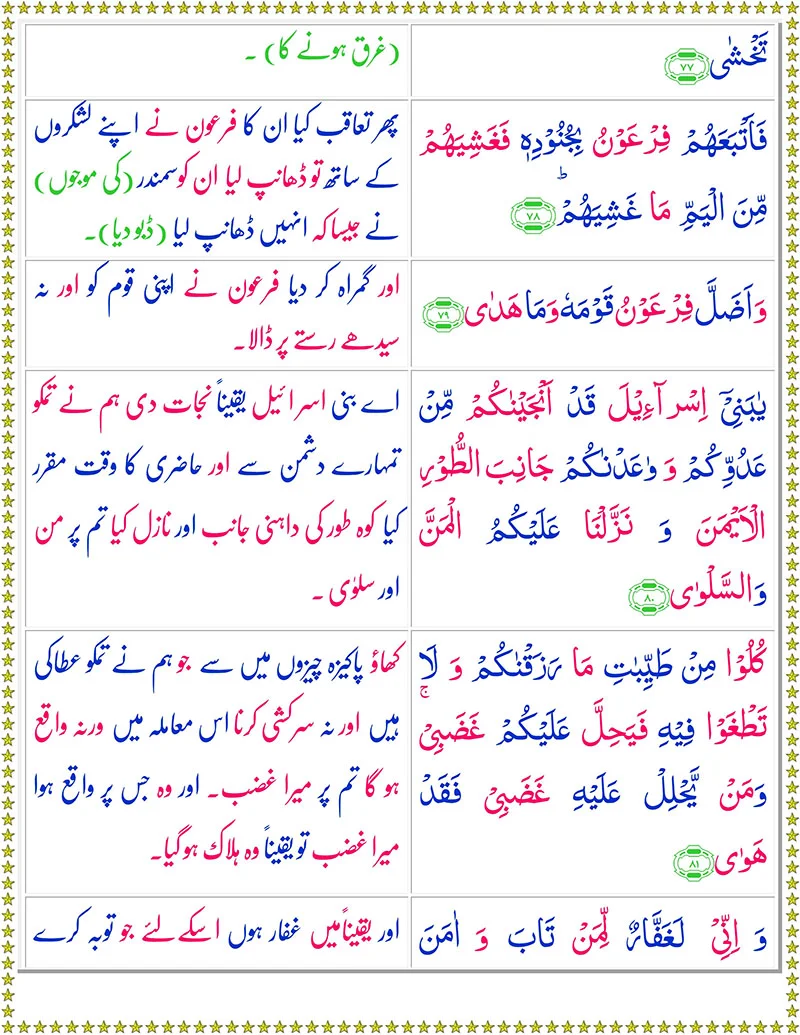 تَخْشٰى ﴿۷۷﴾
(غرق ہونے کا) ۔
فَاَتْبَعَهُمْ فِرْعَوْنُ بِجُنُوْدِهٖ فَغَشِيَهُمْ
مِّنَ الْيَمِّ مَا غَشِيَهُمْ ؕ ﴿۷۸﴾
پھر تعاقب کیا ان کا فرعون نے اپنے لشکروں
کے ساتھ تو ڈھانپ لیا ان کو سمندر (کی موجوں)
نے جیسا کہ انہیں ڈھانپ لیا (ڈبو دیا)۔
وَاَضَلَّ فِرْعَوْنُ قَوْمَهٗ وَمَا هَدٰى ﴿۷۹﴾
اور گمراہ کر دیا فرعون نے اپنی قوم کو اور نہ
سیدھے رستے پر ڈالا۔
يٰبَنِىْۤ اِسْرَآءِيْلَ قَدْ اَنْجَيْنٰكُمْ مِّنْ
عَدُوِّكُمْ وَ وٰعَدْنٰكُمْ جَانِبَ الطُّوْرِ
الْاَيْمَنَ وَ نَزَّلْنَا عَلَيْكُمُ الْمَنَّ
وَالسَّلْوٰى ﴿۸۰﴾
اے بنی اسرائیل یقیناً نجات دی ہم نے تمکو
تمہارے دشمن سے اور حاضری کا وقت مقرر
کیا کوہ طور کی داہنی جانب اور نازل کیا تم پر من
اور سلوٰی ۔
كُلُوْا مِنْ طَيِّبٰتِ مَا رَزَقْنٰكُمْ وَ لَا
تَطْغَوْا فِيْهِ فَيَحِلَّ عَلَيْكُمْ غَضَبِىْ ۚ
وَمَنْ يَّحْلِلْ عَلَيْهِ غَضَبِىْ فَقَدْ
هَوٰى ﴿۸۱﴾
کھاؤ پاکیزہ چیزوں میں سے جو ہم نے تمکو عطا کی
ہیں اور نہ سرکشی کرنا اس معاملہ میں ورنہ واقع
ہو گا تم پر میرا غضب۔ اور وہ جس پر واقع ہوا
میرا غضب تو یقیناً وہ ہلاک ہوگیا۔
وَ اِنِّىْ لَغَفَّارٌ لِّمَنْ تَابَ وَ اٰمَنَ
اور یقیناًمیں غفار ہوں اسکے لئے جو توبہ کرے